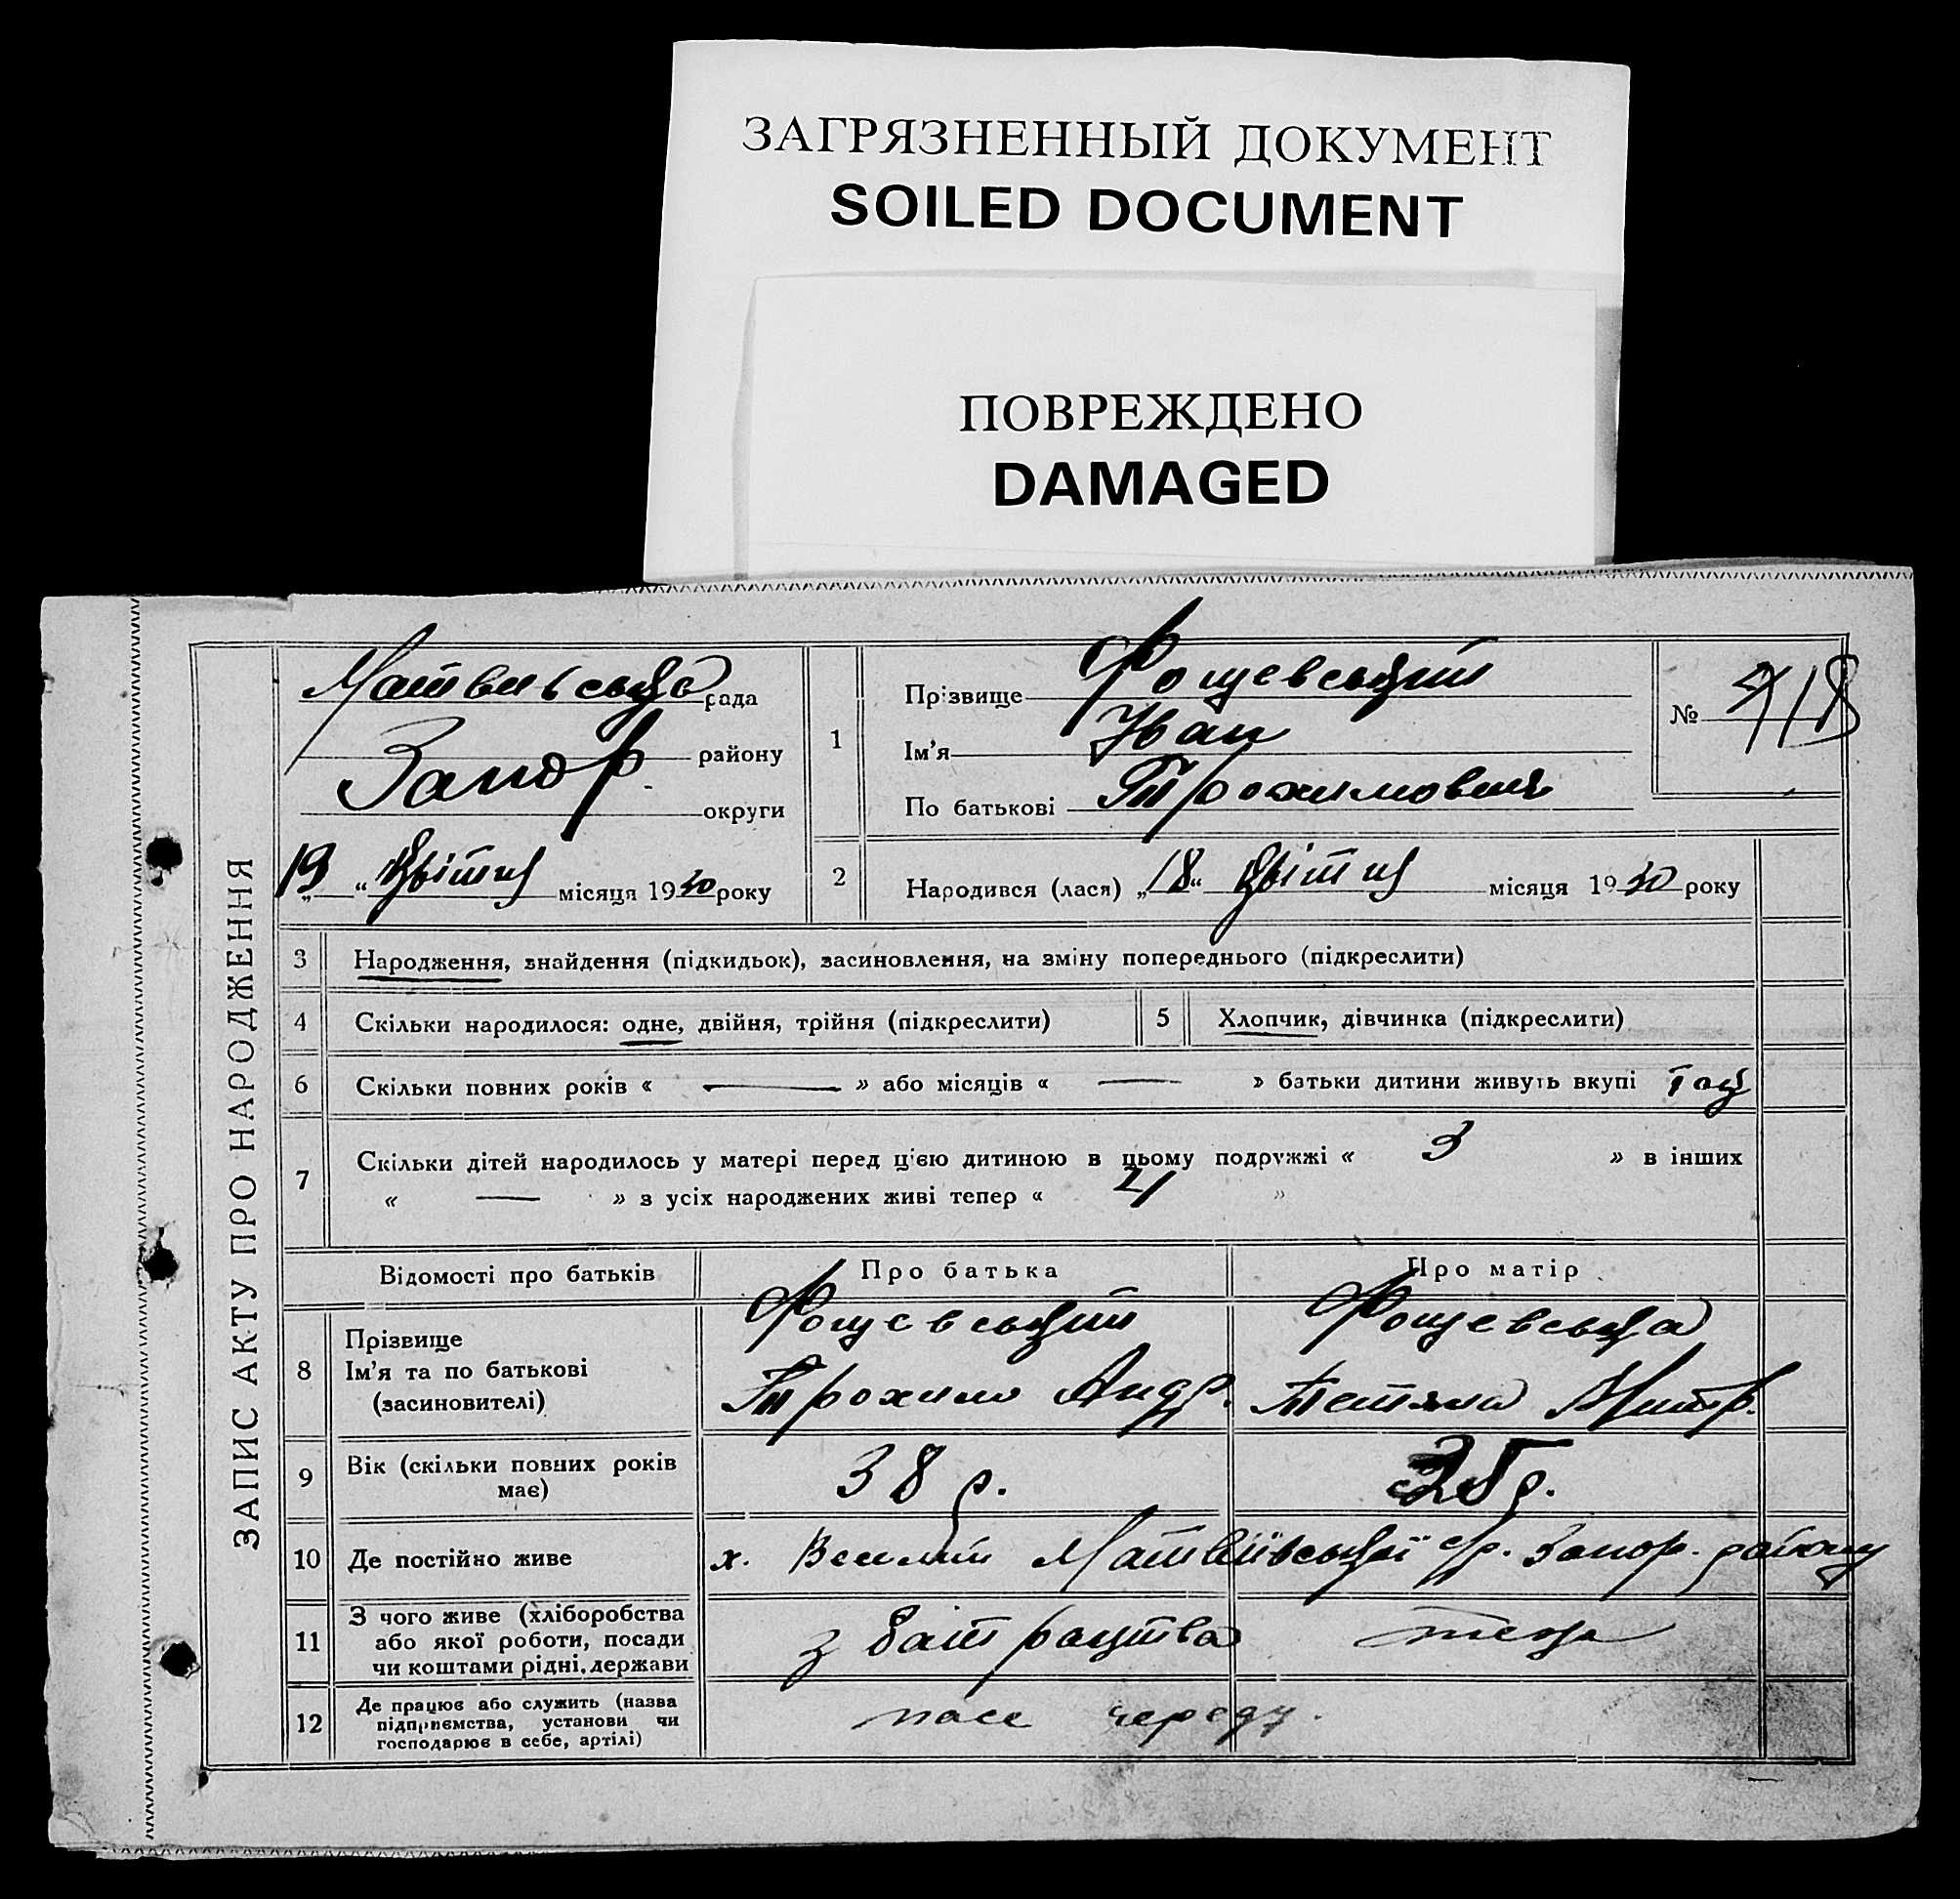 ЗАГРЯЗНЕННЫЙ ДОКУМЕНТ
SOILED DOCUMENT
ПОВРЕЖДЕНО
DAMAGED
ЗАПИС АКТУ ПРО НАРОДЖЕННЯ
рада
району
Запор.
округи
19 " Цвітня місяця 1930 року
1
Прізвище Фощевський
Ім'я Іван
По батькові Трохимович
№
2
Народився (лася) „18" Цвітня місяця 1930 року
3 Народження, знайдення (підкидьок), засиновлення, на зміну попереднього (підкреслити)
4 Скільки народилося: одне, двійня, трійня (підкреслити)
5 Хлопчик, дівчинка (підкреслити)
6 Скільки повних років « — » або місяців « — » батьки дитини живуть вкупі
7 Скільки дітей народилось у матері перед цією дитиною в цьому подружжі « 3 » в інших
« — » з усіх народжених живі тепер « »
Відомості про батьків
Про батька
Про матір
8 Прізвище
Ім'я та по батькові
(засиновителі)
Фощевський
Трохим Андр.
Фощевська
Тетяна Дмитр.
9 Вік (скільки повних років
має)
38 р.
35 р.
10 Де постійно живе
х. Веселий Матвіївської с/р. Запор. району
11 З чого живе (хліборобства
або якої роботи, посади
чи коштами рідні, держави
з батрацтва
теж
12 Де працює або служить (назва
підприємства, установи чи
господарює в себе, артілі)
пасе череду.